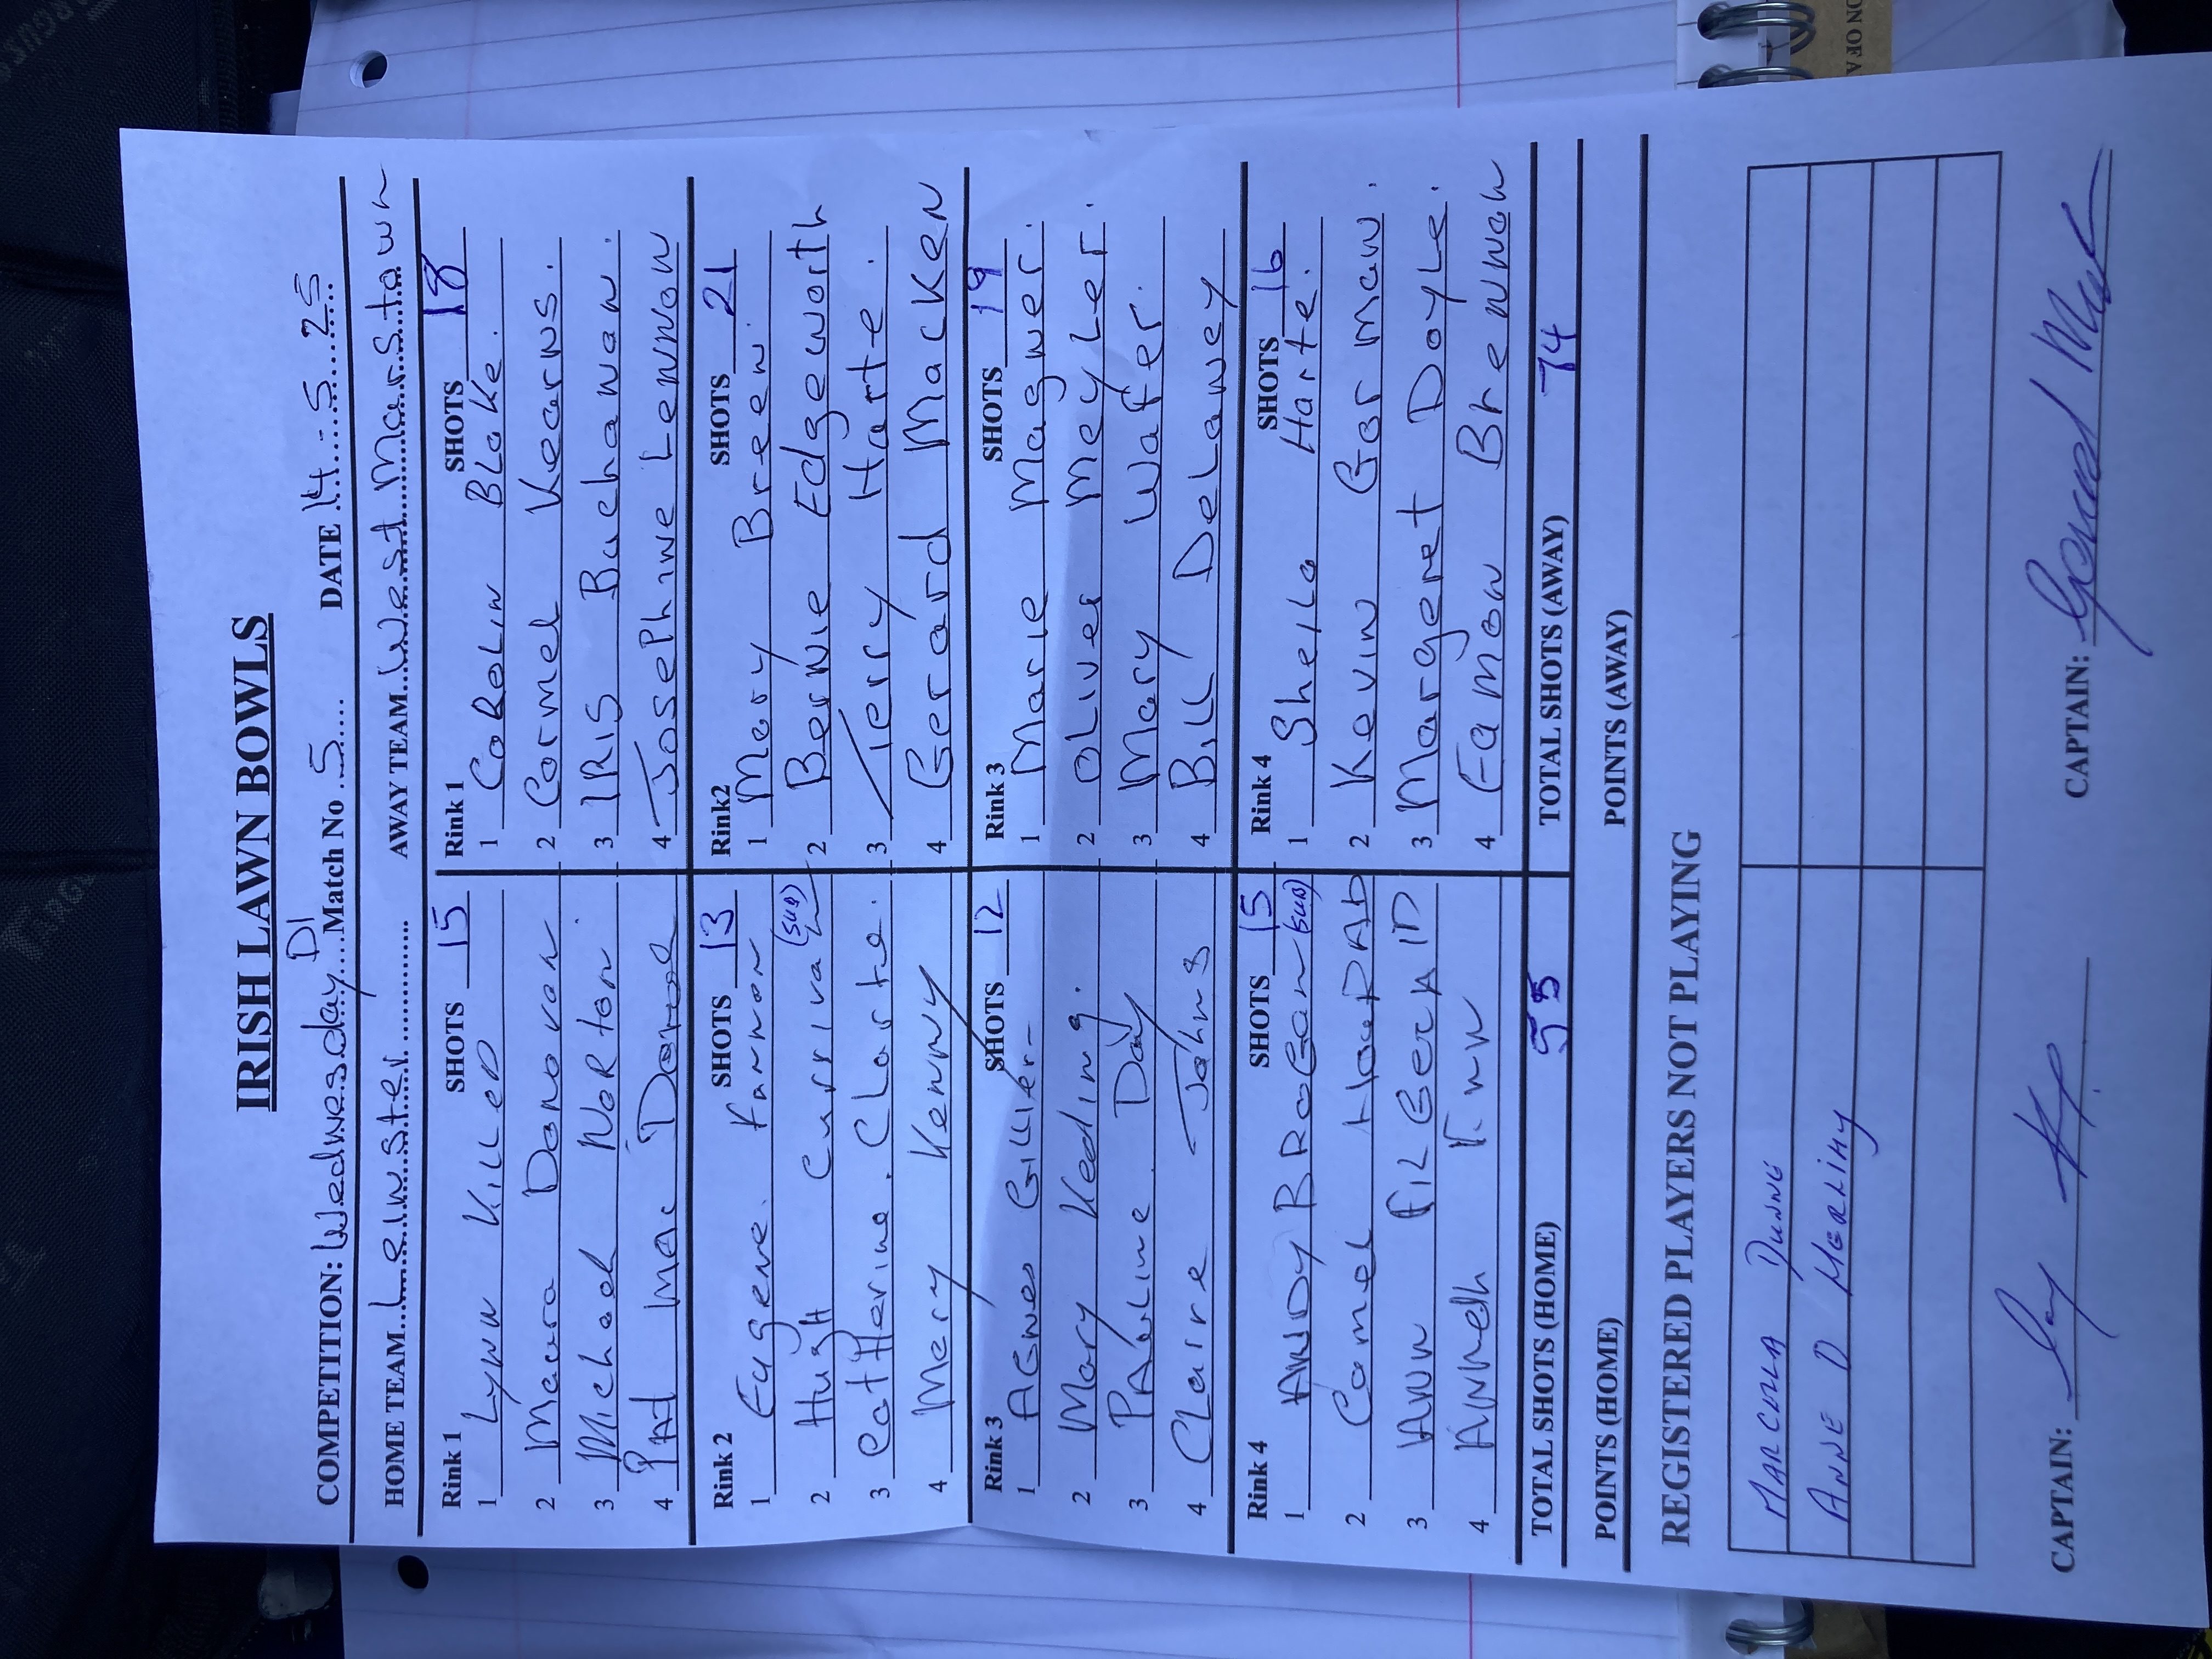 IRISH LAWN BOWLS
D1
COMPETITION: Wednesday Match No 5 DATE 14-5-25
HOME TEAM Leinster AWAY TEAM West Marstown
Rink 1 SHOTS 15 Rink 1 SHOTS 18
1 Lynn KilleD 1 CaRoLin BLake.
2 Macura Donovan 2 Cormel Kearns.
3 Michael NoRton 3 IRIS Buchanan.
4 PAt Mac Donnel 4 Josephine Lennon
Rink 2 SHOTS 13 Rink2 SHOTS 21
1 Eugene Fannon 1 Mary Breen.
2 HugH Currivan (SUB) 2 Bernie Edgeworth
3 CatHerine CLarke. 3 Terry Harte.
4 Mery Kenny 4 Gerard Macken
Rink 3 SHOTS 12 Rink 3 SHOTS 19
1 AGnes GilLier 1 Marie Magner.
2 Mary Keding. 2 OLiver MeyLer.
3 PAuLine Day 3 Mary Wafer.
4 CLaire Johns 4 BiLL DeLaney
Rink 4 SHOTS 15 Rink 4 SHOTS 16
1 ANDY BROGan (SUB) 1 SheiLa Harte.
2 Carmel 2 Kevin Gorman.
3 ANN FiLGeRAlD 3 Margeret DoyLe.
4 Finn 4 Eamon Brennan
TOTAL SHOTS (HOME) 55 TOTAL SHOTS (AWAY) 74
POINTS (HOME) POINTS (AWAY)
REGISTERED PLAYERS NOT PLAYING
MARCELLA DUNNE
ANNE D MERLIHY
CAPTAIN: CAPTAIN: Gerard